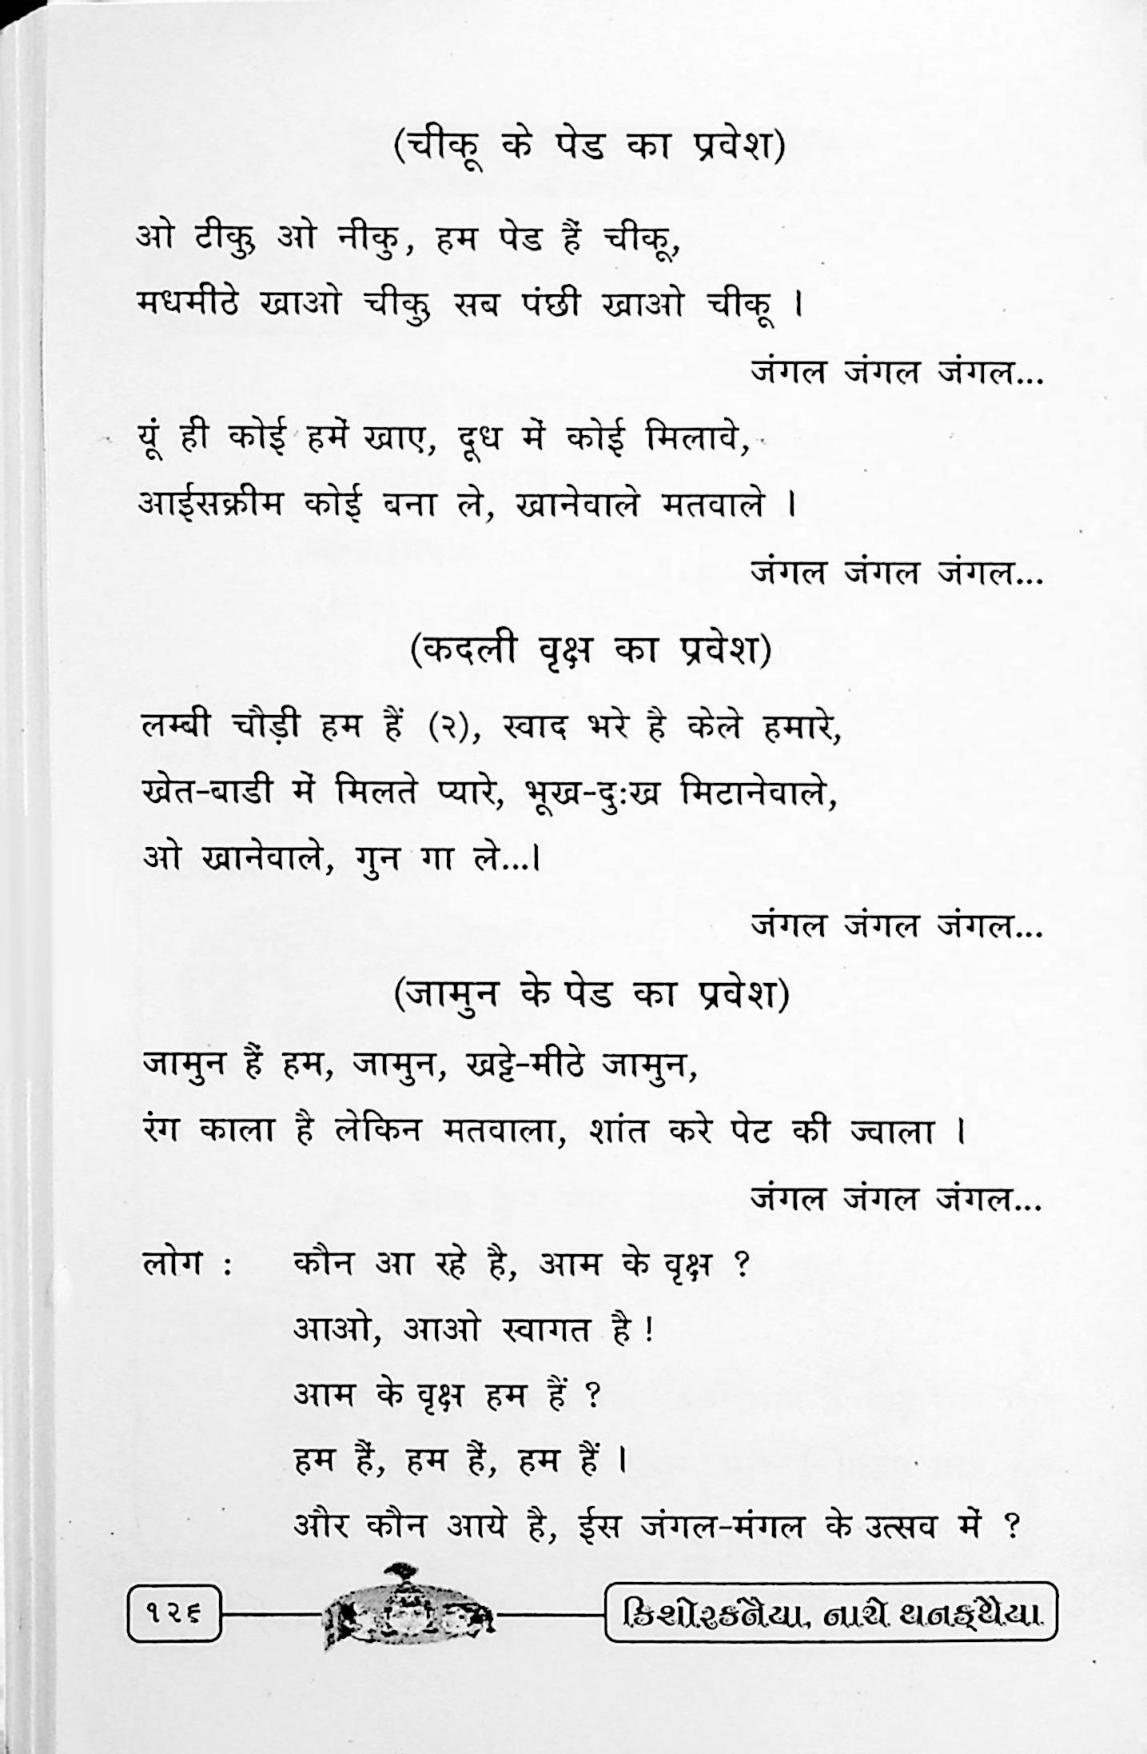 (चीकू के पेड का प्रवेश)
ओ टीकु, ओ नीकु, हम पेड हैं चीकू,
मधमीठे खाओ चीकु, सब पंछी खाओ चीकू ।
जंगल जंगल जंगल...
यूं ही कोई हमें खाए, दूध में कोई मिलावे,
आईसक्रीम कोई बना ले, खानेवाले मतवाले ।
जंगल जंगल जंगल...
(कदली वृक्ष का प्रवेश)
लम्बी चौड़ी हम हैं (२), स्वाद भरे है केले हमारे,
खेत-बाडी में मिलते प्यारे, भूख-दुःख मिटानेवाले,
ओ खानेवाले, गुन गा ले...।
जंगल जंगल जंगल...
(जामुन के पेड का प्रवेश)
जामुन हैं हम, जामुन, खट्टे-मीठे जामुन,
रंग काला है लेकिन मतवाला, शांत करे पेट की ज्वाला ।
जंगल जंगल जंगल...
लोग : कौन आ रहे है, आम के वृक्ष ?
आओ, आओ स्वागत है !
आम के वृक्ष हम हैं ?
हम हैं, हम हैं, हम हैं ।
और कौन आये है, ईस जंगल-मंगल के उत्सव में ?
१२६ કિશોરકનૈયા, નાચે થનક્થૈયા